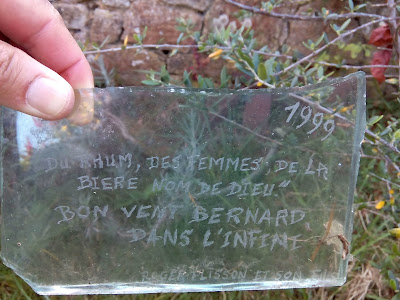 1999
DU RHUM, DES FEMMES DE LA
BIERE NOM DE DIEU"
BON VENT BERNARD
DANS L'INFINI
ROGER PLISSON ET SON